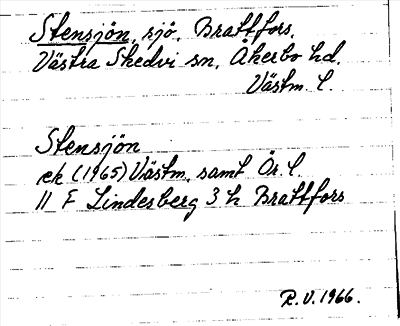 Stensjön, sjö, Brattfors,
Västra Skedvi sn, Åkerbo hd.
Västm. l.
Stensjön
ek (1965) Västm. samt Ör. l.
11 F Lindesberg 3 h Brattfors
R.V. 1966.